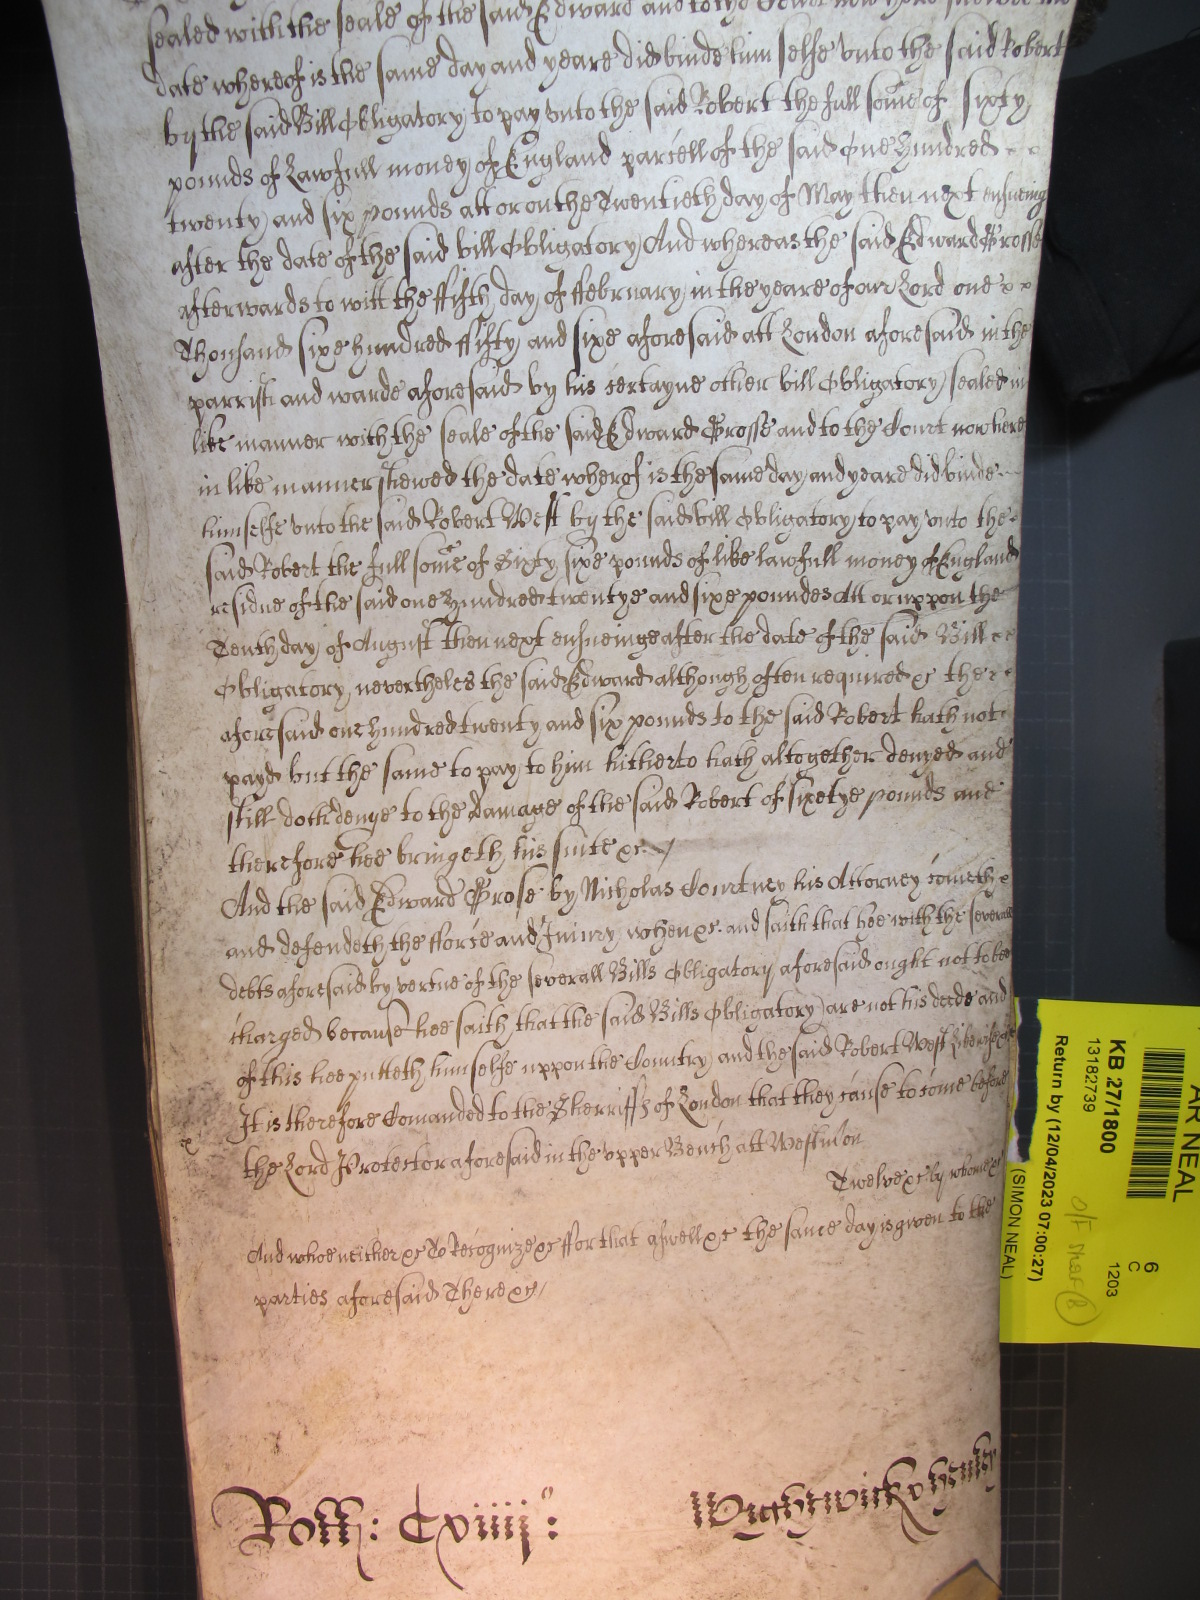 sealed with the seale of the said Edward and to the Court now here
date whereof is the same day and yeare did binde him selfe vnto the said Robert
by the said Bill Obligatory to pay vnto the said Robert the full some of sixty
pounds of Lawfull money of England parcell of the said One Hundred
twenty and six pounds att or on the Twentieth day of May then next ensueing
after the date of the said bill Obligatory And whereas the said Edward Grosse
afterwards to witt the ffifth day of ffebruary in the yeare of our Lord one
Thousand sixe hundred ffifty and sixe aforesaid att London aforesaid in the
parrish and warde aforesaid by his certayne other bill Obligatory sealed in
like manner with the seale of the said Edward Grosse and to the Court now here
in like manner shewed the date wherof is the same day and yeare did binde
himselfe vnto the said Robert West by the said bill Obligatory to pay vnto the
said Robert the full some of Sixty sixe pounds of like lawfull money of England
residue of the said one Hundred twentye and sixe poundes Att or uppon the
Tenth day of August then next ensueinge after the date of the said Bill
Obligatory, nevertheles the said Edward although often required &c the
aforesaid one hundred twenty and six pounds to the said Robert hath not
payd but the same to pay to him hitherto hath altogether denyed and
still doth denye to the damage of the said Robert of sixetye pounds and
therefore hee bringeth his suite &c.
And the said Edward Grose by Nicholas Courtney his Attorney cometh
and defendeth the fforce and Iniury when &c. and saith that hee with the severall
debts aforesaid by vertue of the severall Bills Obligatory aforesaid ought not to bee
charged because hee saith that the said Bills Obligatory are not his deede and
of this hee putteth himselfe uppon the Country and the said Robert West likewise &c
It is therefore Comanded to the Sherriffs of London that they cause to come before
the Lord Protector aforesaid in the vpper Bench att Westm̃
Twelve &c. by whome &c
And whoe neither &c To Recognize &c ffor that aswell &c the same day is given to the
parties aforesaid There &c
Roll: Cxiiij:
Wightwick
AR NEAL
6
C
1203
KB 27/1800
13182739
Return by (12/04/2023 07:00:27)
(SIMON NEAL)